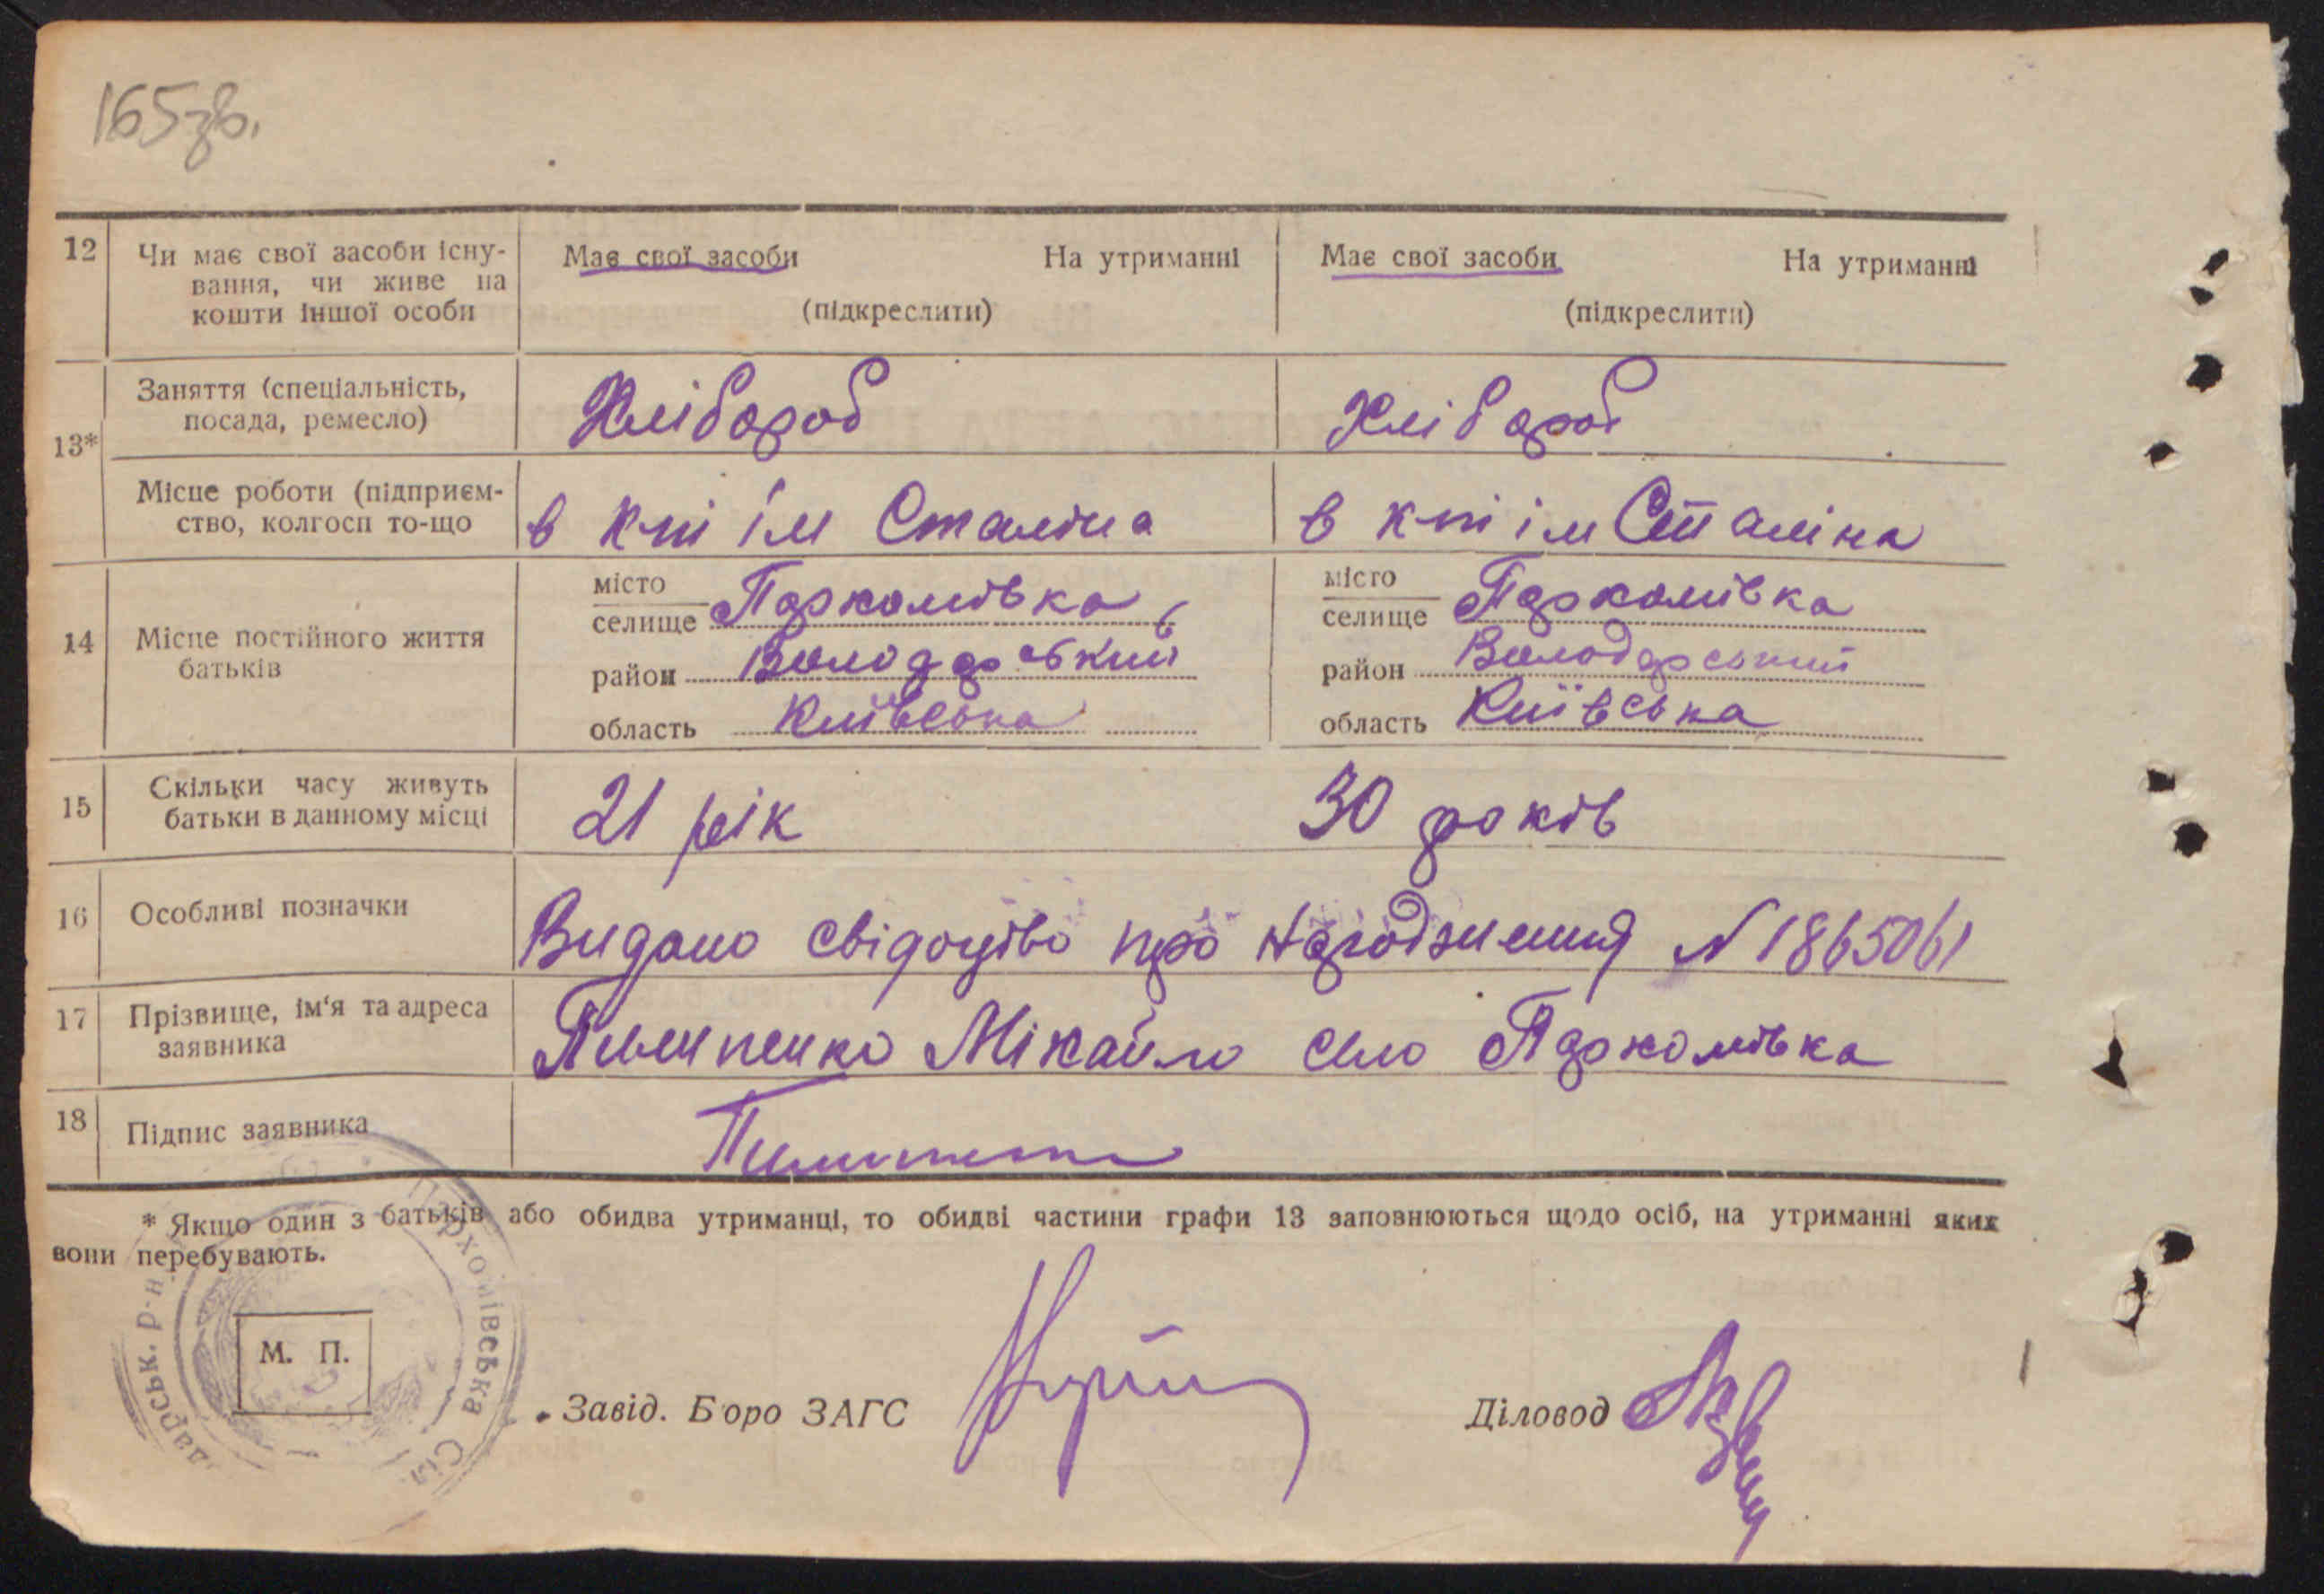 165зв.
12 Чи має свої засоби існу-
вання, чи живе на
кошти іншої особи
Має свої засоби На утриманні Має свої засоби На утриманні
(підкреслити) (підкреслити)
13*
Заняття (спеціальність,
посада, ремесло)
Хлібороб Хлібороб
Місце роботи (підприєм-
ство, колгосп то-що
в кпі ім Сталіна в кпі ім Сталіна
14 Місце постійного життя
батьків
місто
селище Пархомівка
район Володарський
область Київська
місто
селище Пархомівка
район Володарський
область Київська
15 Скільки часу живуть
батьки в данному місці
21 рік 30 років
16 Особливі позначки
Видано свідоцтво про народження N 1865061
17 Прізвище, ім'я та адреса
заявника
Пилипенко Міхайло село Пархомівка
18 Підпис заявника
* Якщо один з батьків або обидва утриманці, то обидві частини графи 13 заповнюються щодо осіб, на утриманні яких
вони перебувають.
М. П.
Пархомівська Сіл
дарськ. р-н
Завід. Бюро ЗАГС
Діловод